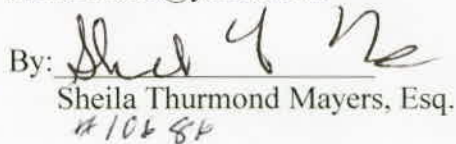 By:
Sheila Thurmond Mayers, Esq.
#10686